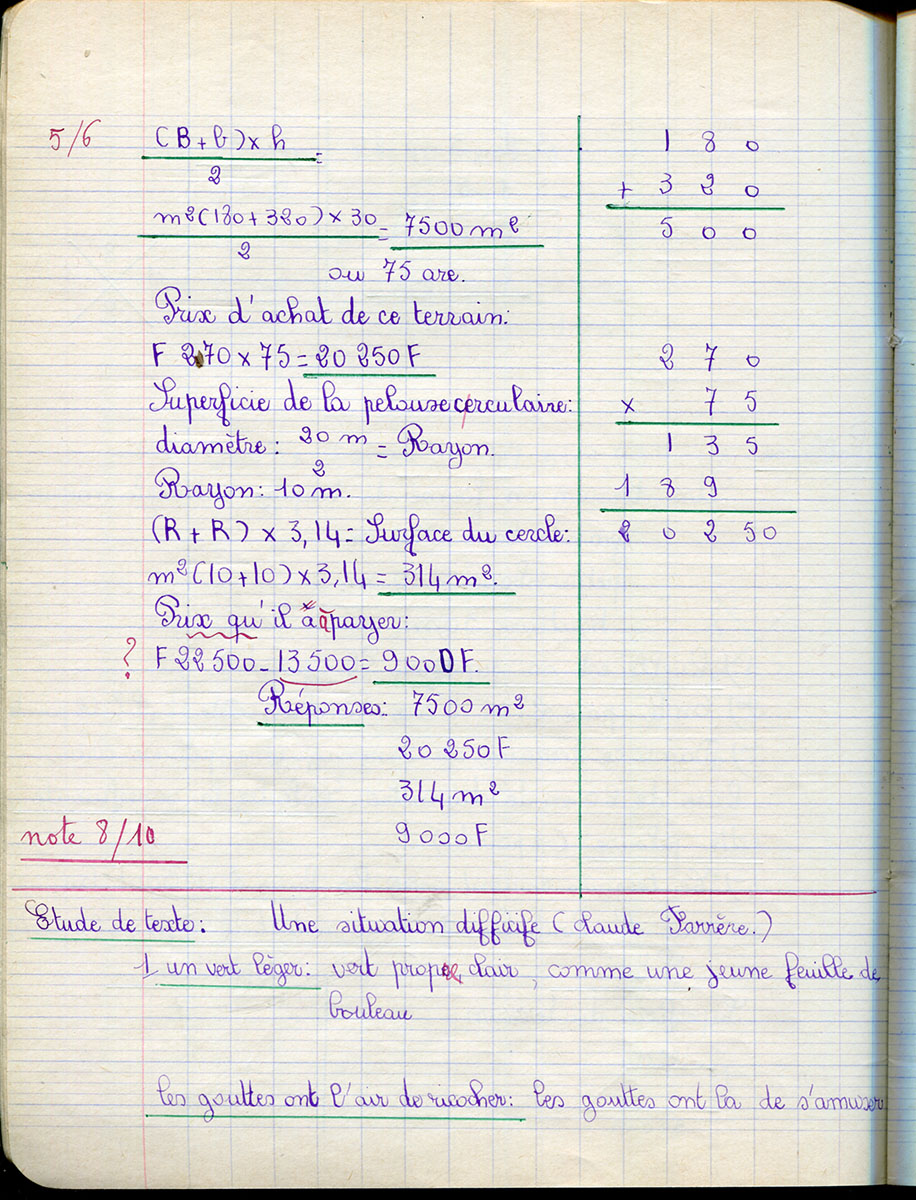 5/6
(B+b)x h =
2
m2(180+320)x 30 = 7500 m2
2
ou 75 are.
Prix d'achat de ce terrain:
F 270 x 75 = 20 250 F
Superficie de la pelouse cerculaire:
diamètre: 20 m = Rayon.
2
Rayon: 10 m.
(R+R) x 3,14 = Surface du cercle:
m2(10+10) x 3,14 = 314 m2.
Prix qu'il a à payer:
? F 22 500 - 13 500 = 9000 F.
Réponses: 7500 m2
20 250 F
314 m2
note 8/10
9000 F
180
+ 320
500
270
x 75
135
189
20250
Etude de texte: Une situation difficile (Claude Farrère.)
1 un vert léger: vert clair, comme une jeune feuille de
bouleau
les gouttes ont l'air de ricocher: les gouttes ont la de s'amuser